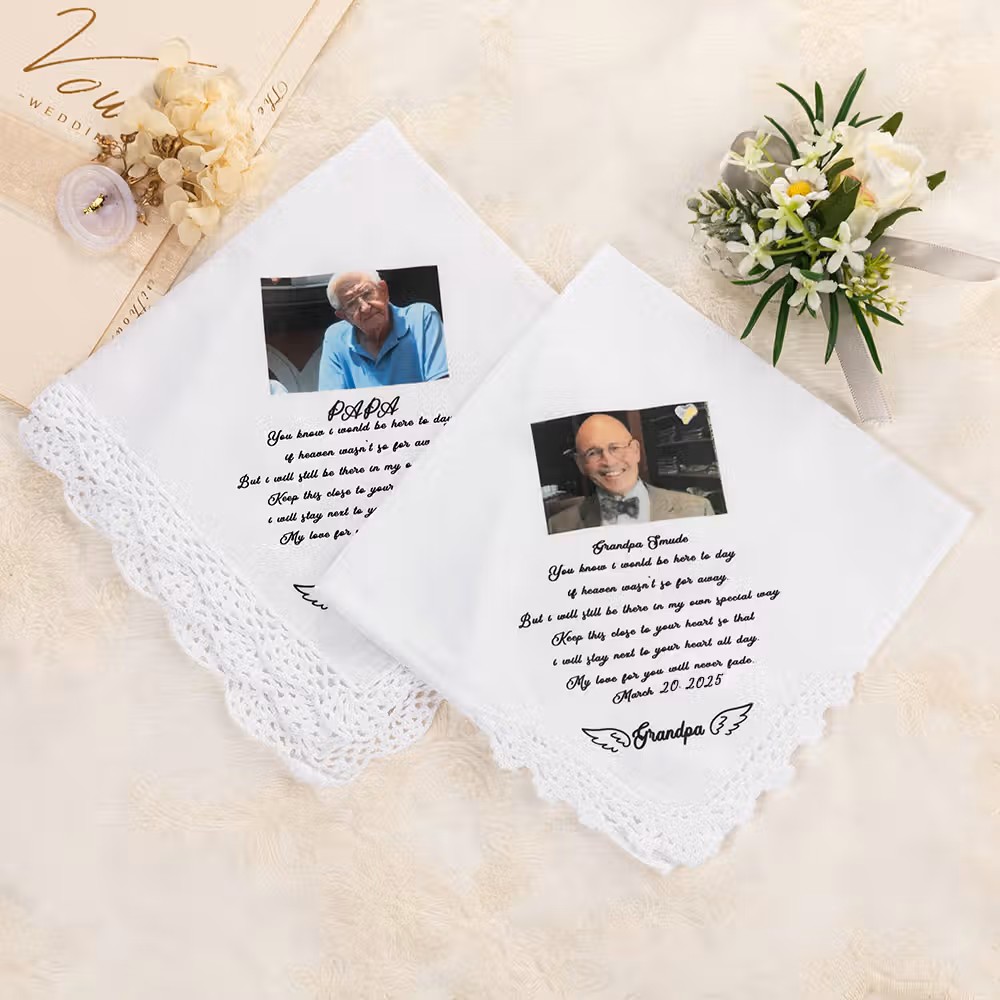 You
-WEDDI
The
PAPA
You know i wonld be here to day
if heaven wasn't so for aw
But i will still be there in my o
Keep this close to your
i will stay next to y
My love for
Grandpa Smude
You know i wonld be here to day
if heaven wasn't so for away.
But i will still be there in my own special way
Keep this close to your heart so that
i will slay next to your heart all day.
My love for you will never fade.
March 20. 2025
Grandpa